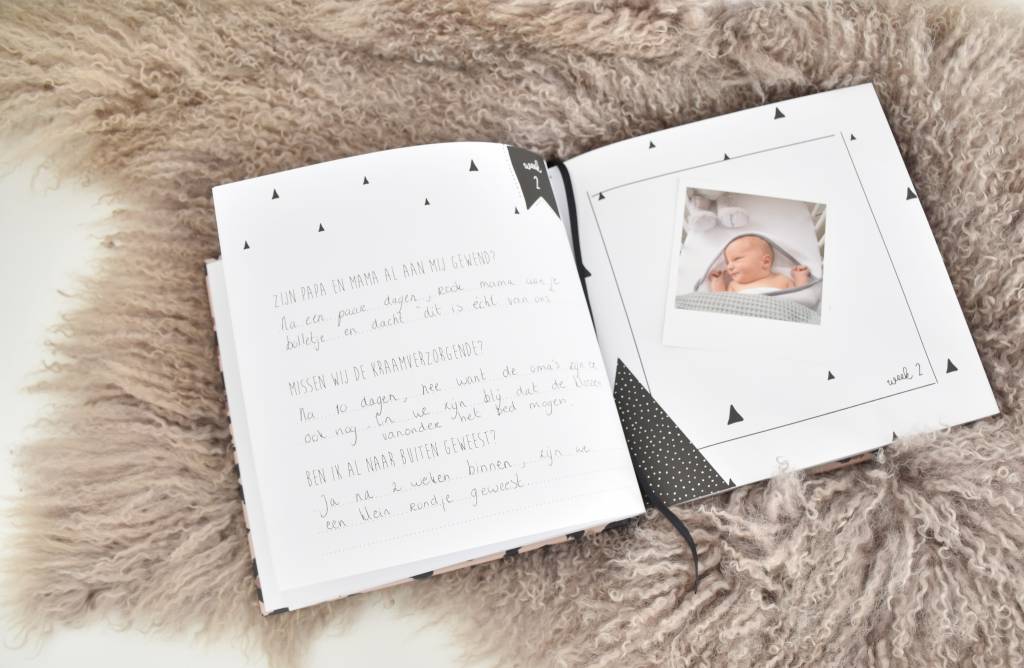 week
2
ZIJN PAPA EN MAMA AL AAN MIJ GEWEND?
Na een paar dagen, rook mama aan je
bolletje en dacht "dit is écht van ons"
MISSEN WIJ DE KRAAMVERZORGENDE?
Na 10 dagen, nee want de oma's zijn er
ook nog. En we zijn blij dat de klossen
vanonder het bed mogen.
BEN IK AL NAAR BUITEN GEWEEST?
Ja na 2 weken binnen, zijn we
een klein rondje geweest.
week 2